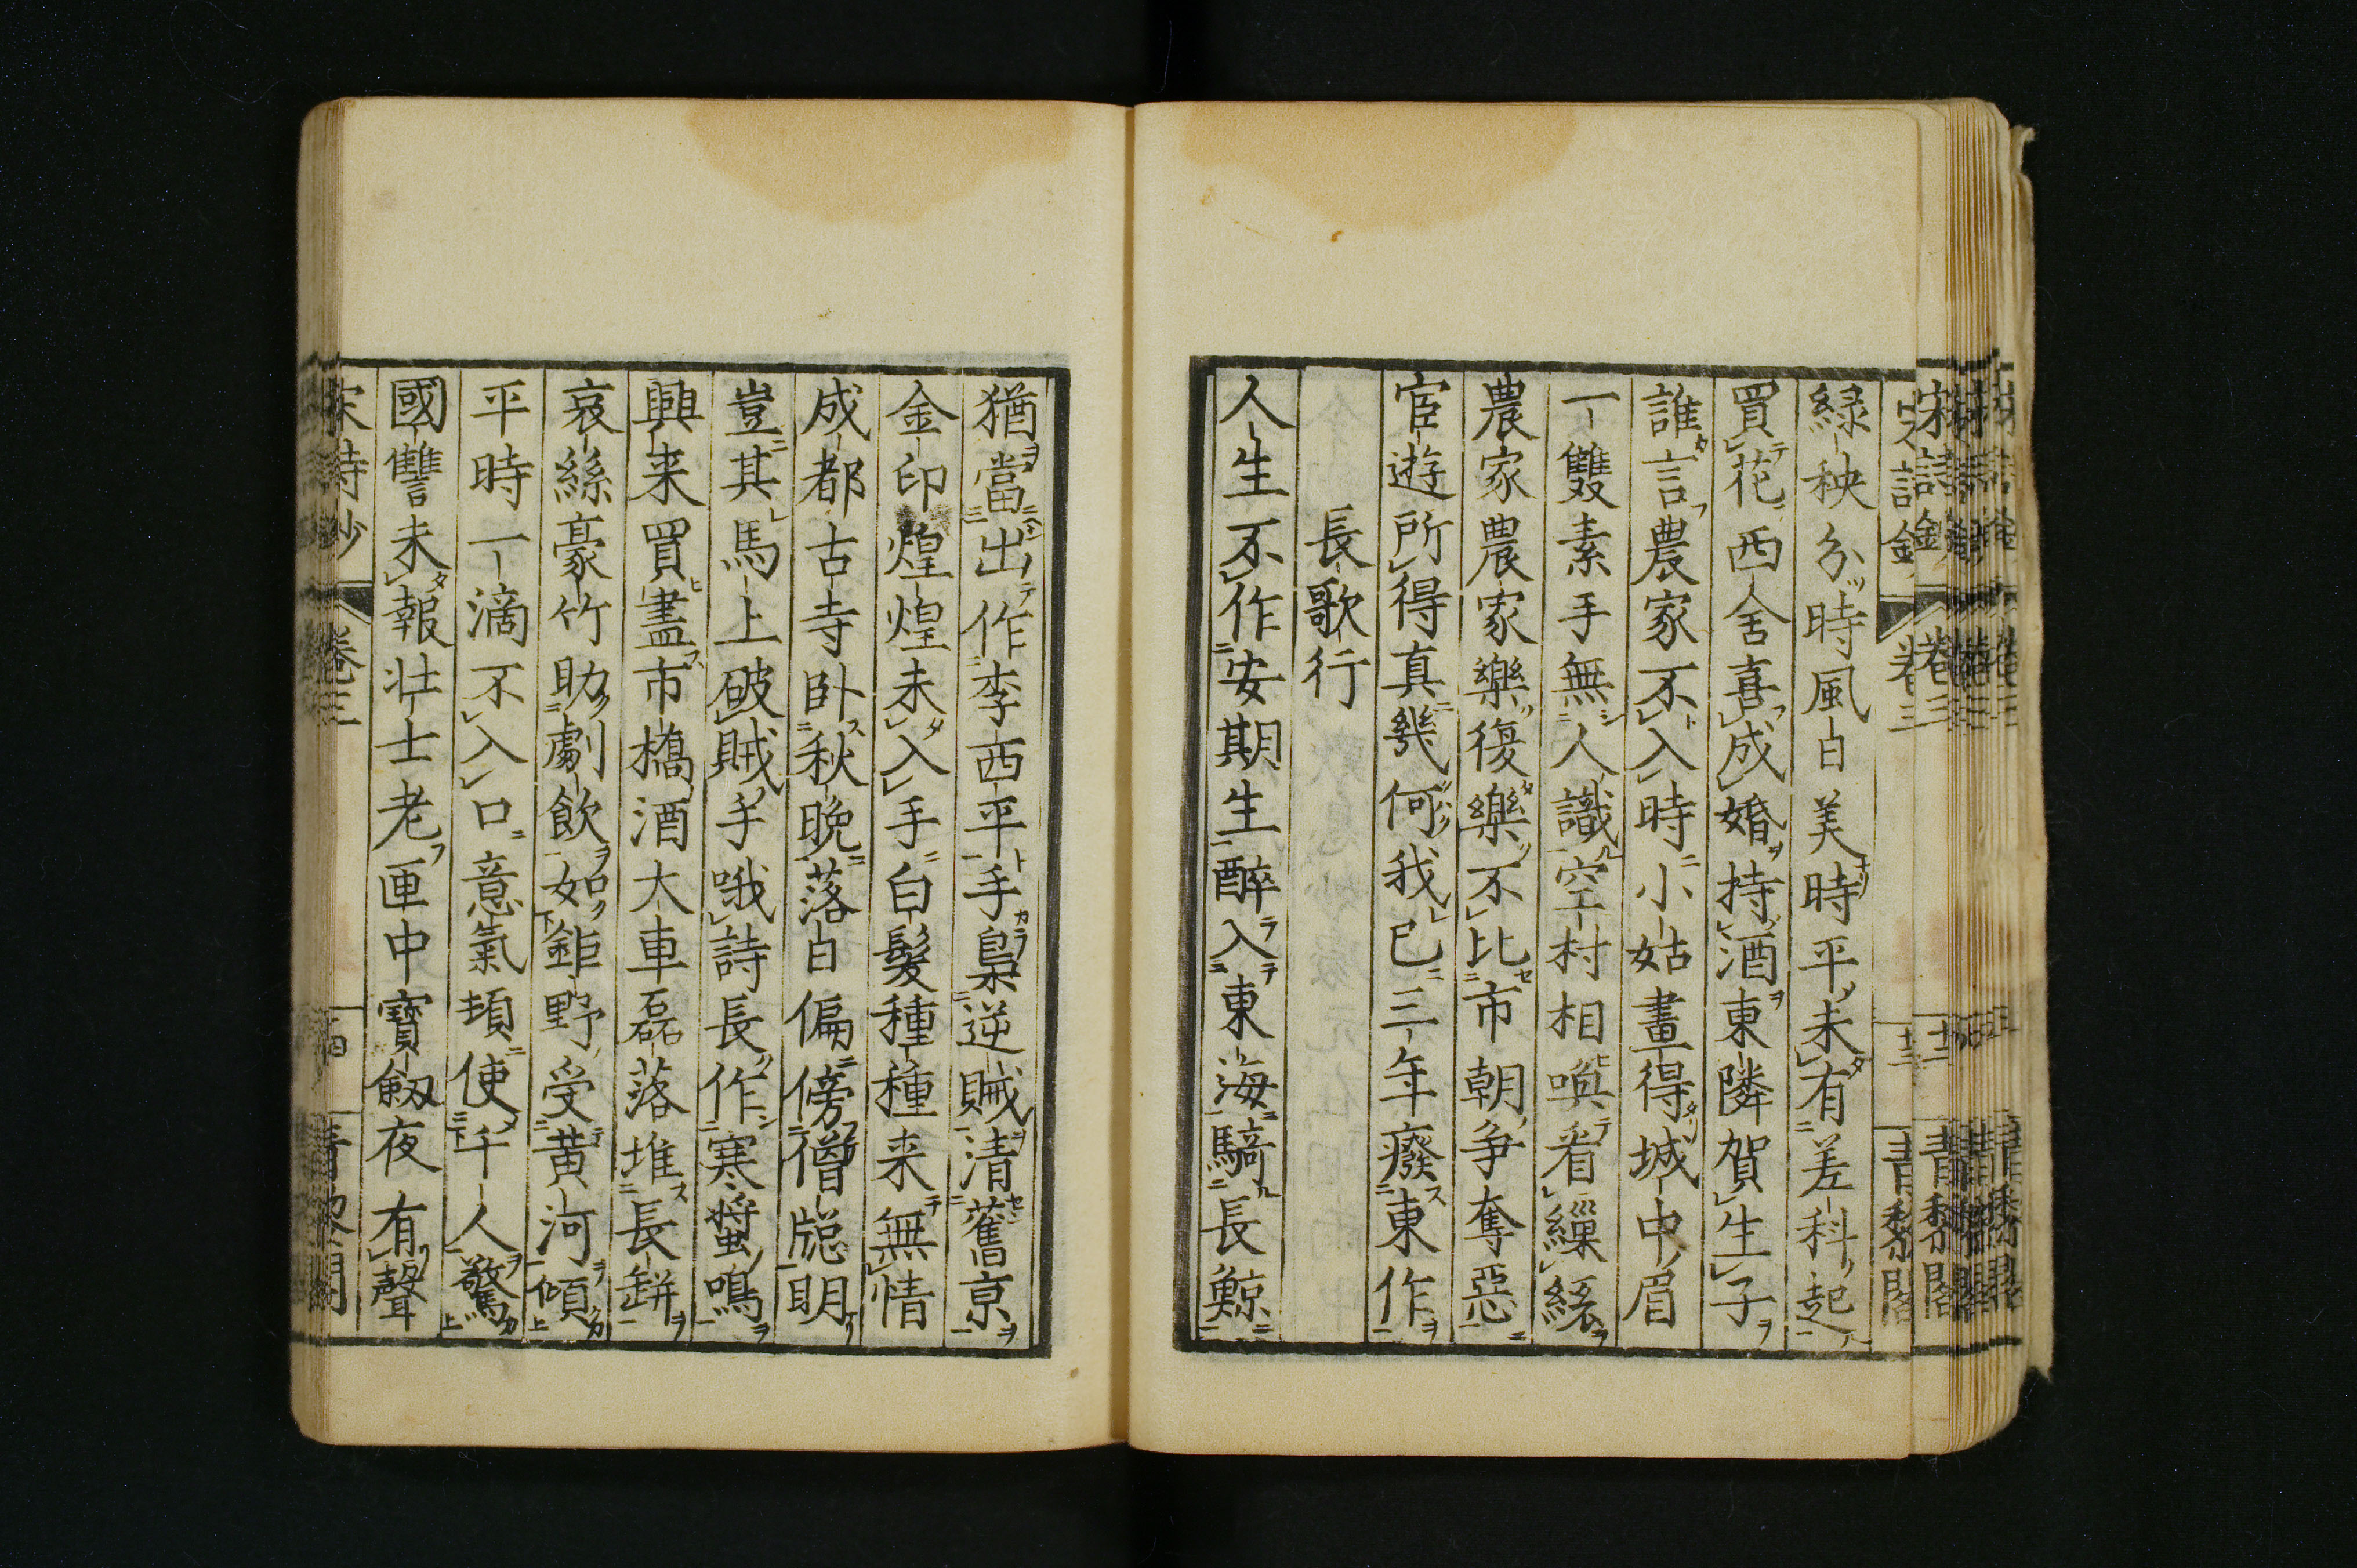 綠秧分時風日美時平未有差科起
買花西舍喜成婚持酒東隣賀生子
誰言農家不入時小姑畫得城中眉
一雙素手無人識空村相喚看繅絲
農家農家樂復樂不比市朝争奪惡
宦遊所得真幾何我已三年癈東作
長歌行
人生不作安期生醉入東海騎長鯨
猶當出作李西平手梟逆賊清舊京
金印煌煌未入手白髮種種来無情
成都古寺卧秋晩落日偏傍僧牕明
豈其馬上破賊手哦詩長作寒螿鳴
興来買盡市橋酒大車磊落堆長缾
哀絲豪竹助劇飲如鉅野受黄河傾
平時一滴不入口意氣頓使千人驚
國讐未報壮士老匣中寶劔夜有聲
宋詩鈔 卷三